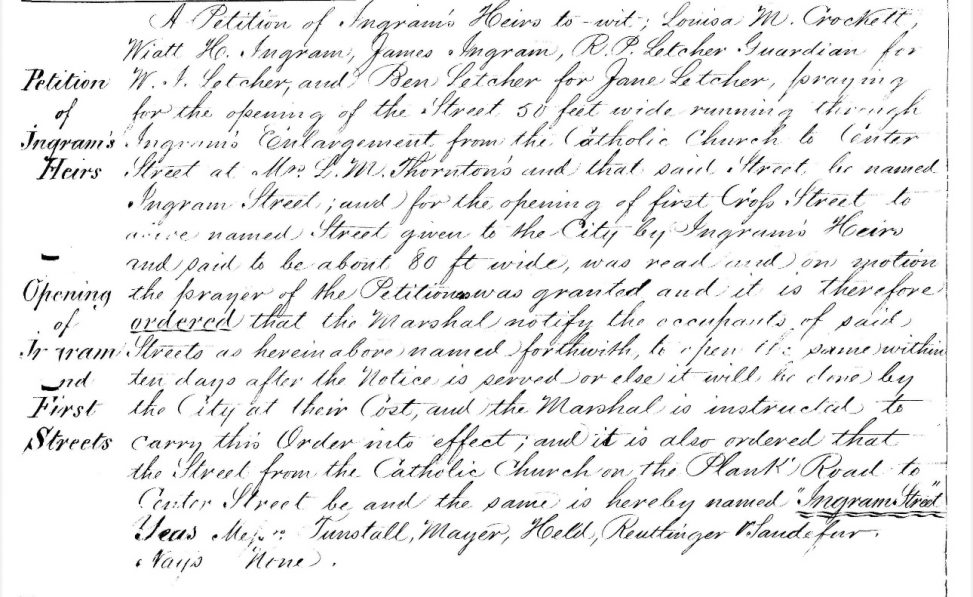 A Petition of Ingram's Heirs to-wit; Louisa M. Crockett,
Wiatt H. Ingram, James Ingram, R. P. Letcher Guardian for
W. I. Letcher, and Ben Letcher for Jane Letcher, praying
for the opening of the Street 50 feet wide running through
Ingram's Enlargement from the Catholic Church to Center
Street at Mrs. L. M. Thornton's and that said Street be named
Ingram Street; and for the opening of first Cross Street to
above named Street given to the City by Ingram's Heirs
and said to be about 80 ft wide, was read and on motion
the prayer of the Petition was granted and it is therefore
ordered that the Marshal notify the occupants of said
Streets as hereinabove named forthwith, to open the same within
ten days after the Notice is served or else it will be done by
the City at their Cost, and the Marshal is instructed to
carry this Order into effect; and it is also ordered that
the Street from the Catholic Church on the Plank Road to
Center Street be and the same is hereby named "Ingram Street"
Yeas Messrs Tunstall, Mayer, Held, Reutlinger & Sandefur.
Nays None.
Petition
of
Ingram's
Heirs
Opening
of
Ingram
and
First
Streets